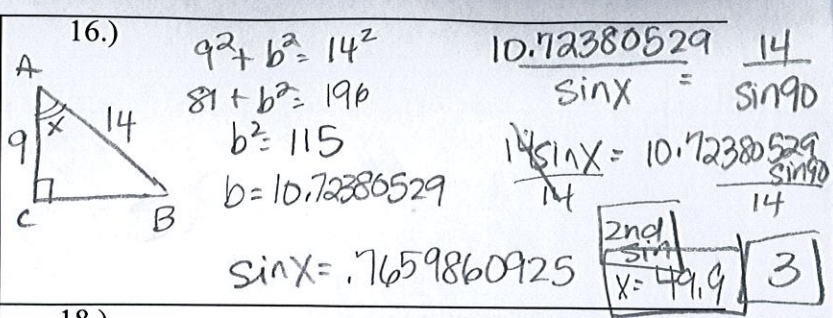 16.)
A
9
x
14
C
B
9² + b² = 14²
81 + b² = 196
b² = 115
b = 10.72380529
10.72380529 / sinx = 14 / sin90
14sinx / 14 = 10.72380529 sin90 / 14
sinx = .7659860925
2nd sin
x = 49.9
3